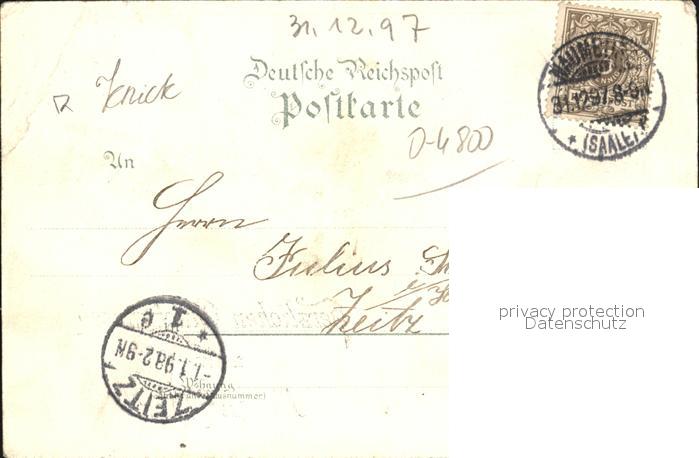 31.12.97
Deutsche Reichspost
Postkarte
Knick
0-4800
An
Herrn
Julius
Zeitz
Wohnung
NAUMBURG
31.12.97. 8-9N.
* (SAALE)
ZEITZ
-1.1.98 2-9N
* 1 c
privacy protection
Datenschutz